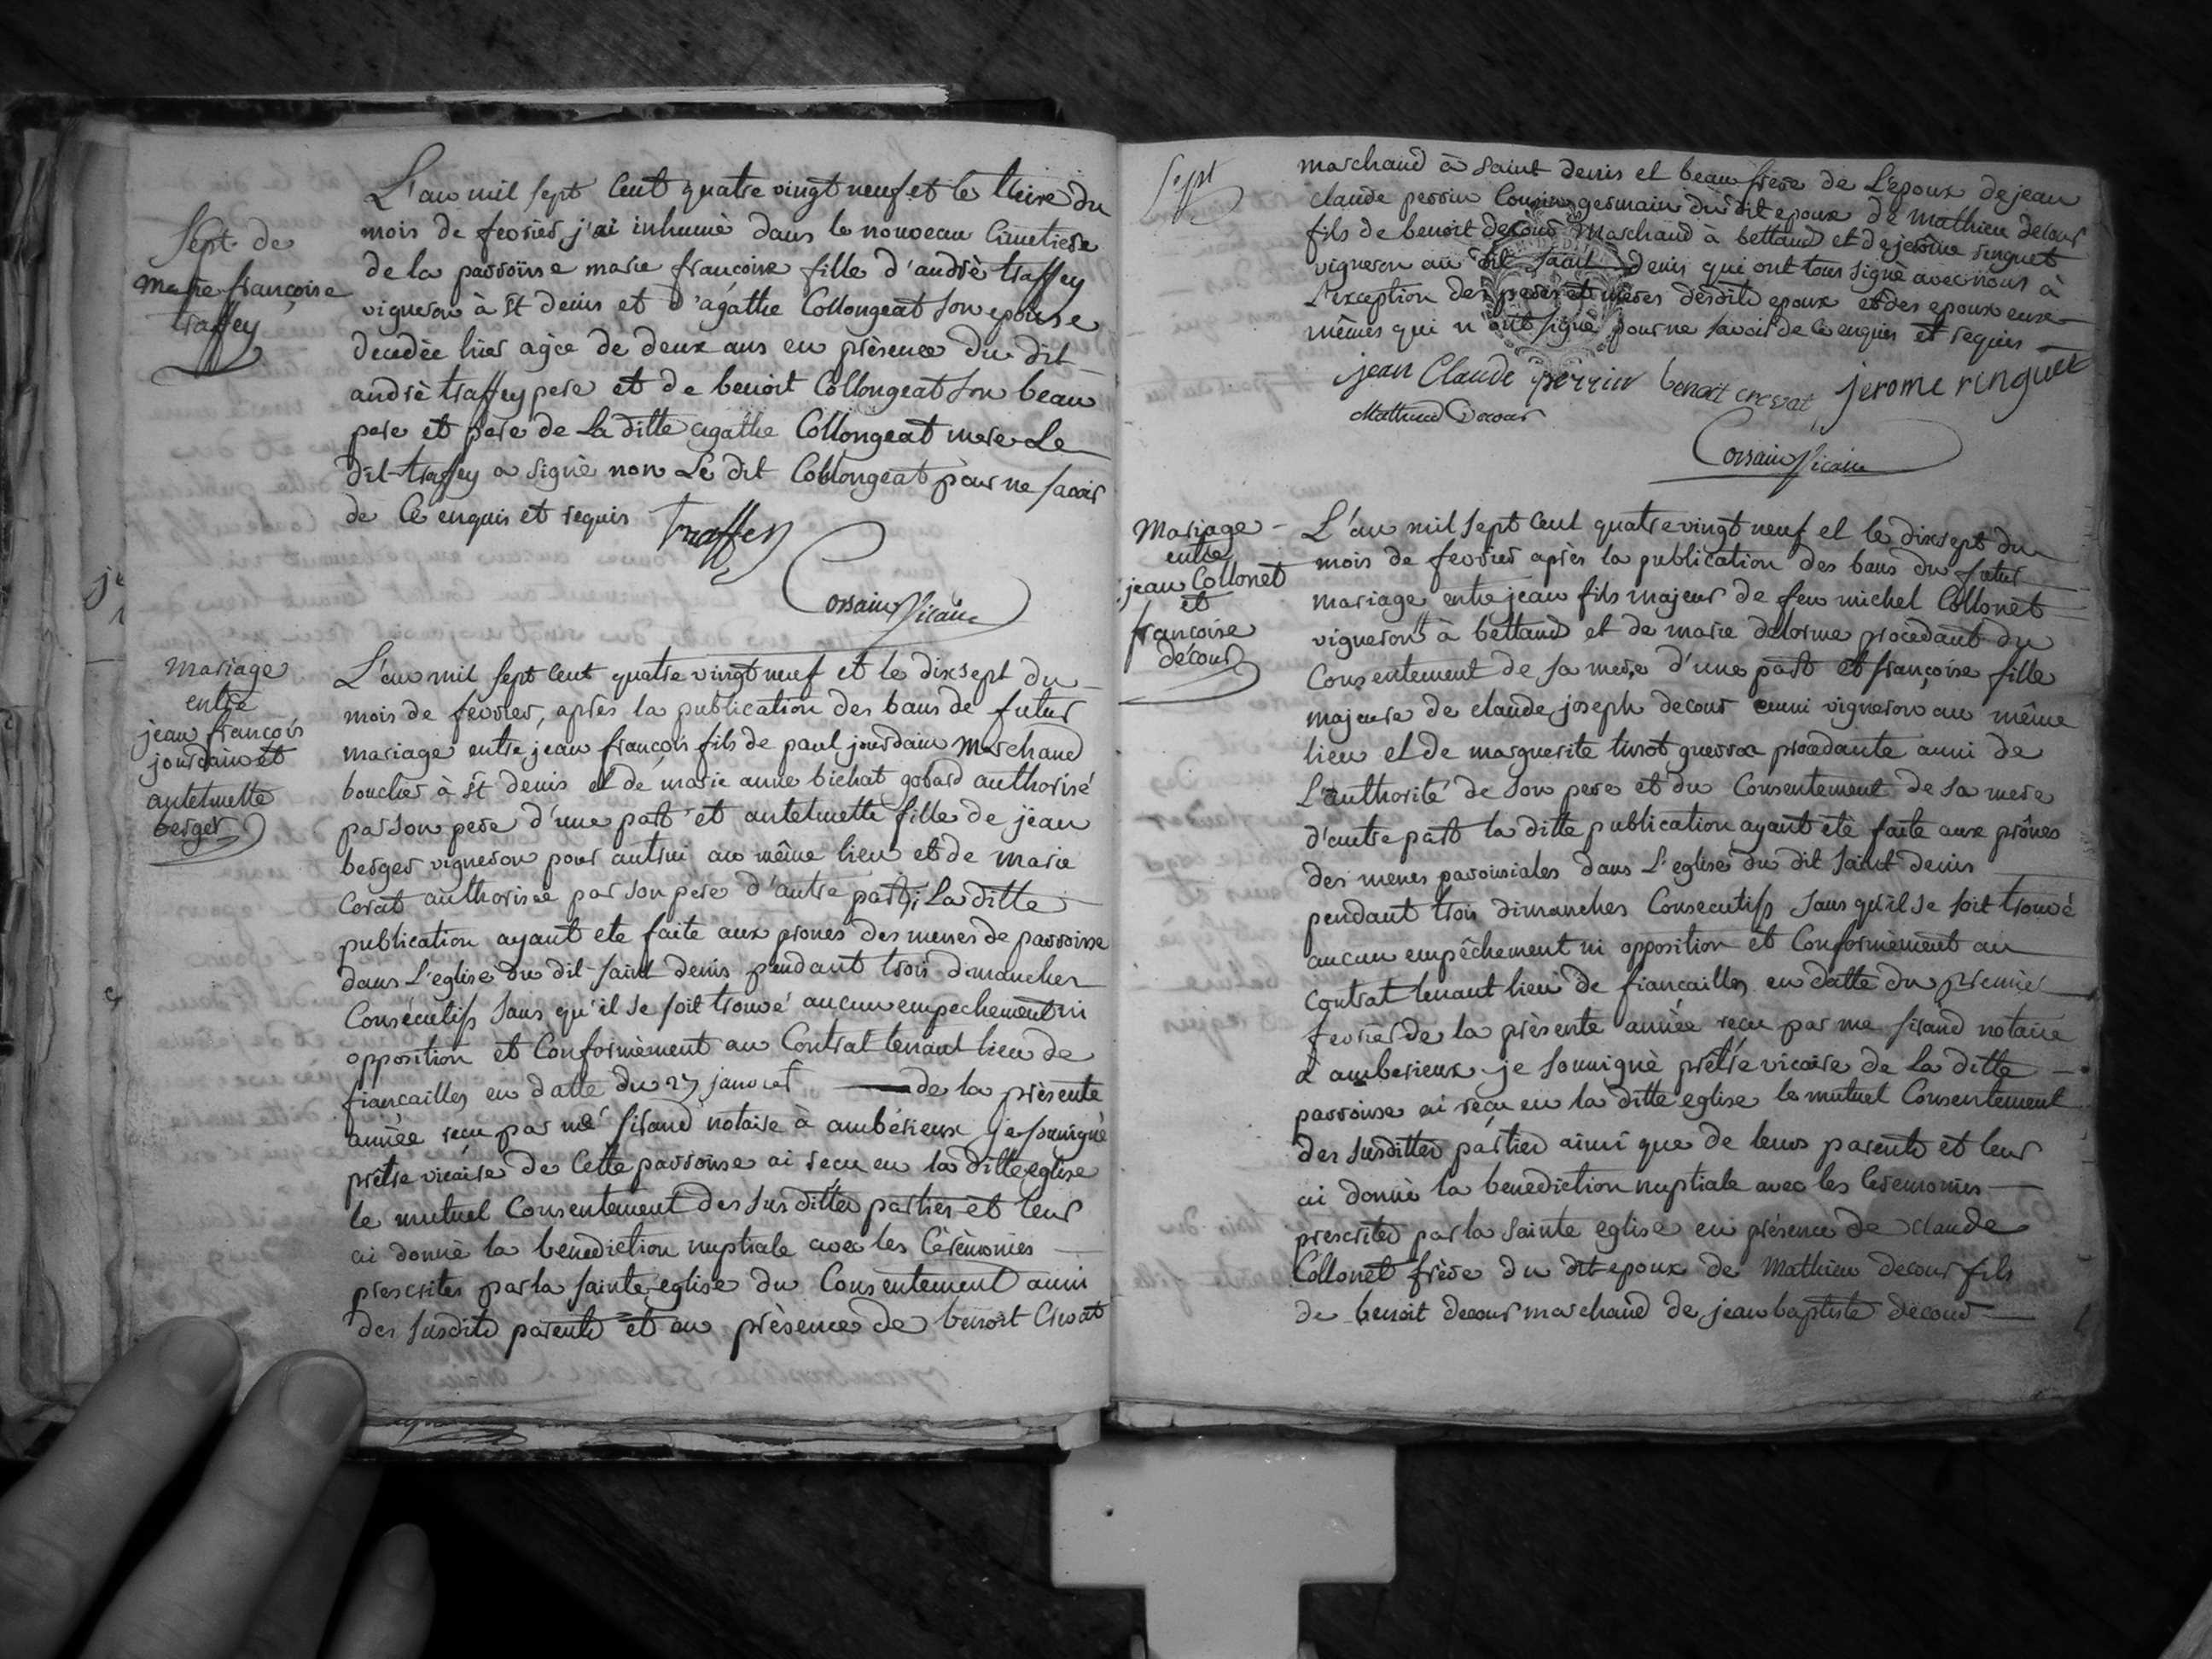 Sept. de
Marie françoise
traffey
L'an mil sept Cent quatre vingt neuf et le treize du
mois de fevrier, j'ai inhumé dans le nouveau Cimetiere
de la parroisse marie françoise fille d'andrè traffey
vigneron à st denis et d'agathe Collongeat son epouse
decedée hier agée de deux ans en présence du dit
andrè traffey pere et de benoit Collongeat son beau
pere et pere de La ditte agathe Collongeat mere Le
dit traffey a signè non Le dit Collongeat pour ne savoir
de Ce enquis et requis
traffey
Corsain vicaire
mariage
entre
jean françois
jourdain et
antelmette
berger
L'an mil sept Cent quatre vingt neuf et le dixsept du
mois de fevrier, apres la publication des bans de futur
mariage entre jean françois fils de paul jourdain Marchand
boucher à st denis et de marie anne bichat gobard authorisé
par son pere d'une part et antelmette fille de jean
berger vigneron pour autrui au même lieu et de marie
Corat authorisée par son pere d'autre part; La ditte
publication ayant ete faite aux prones des messes de parroisse
dans L'eglise du dit saint denis pendant trois dimanches
Consécutifs sans qu'il se soit trouvé aucun empechement ni
opposition et Conformèment au Contrat tenant lieu de
fiancailles en datte du 27 janvier de la présente
année reçu par me sirand notaire à ambérieux je soussigné
prêtre vicaire de Cette parroisse ai reçu en la ditte eglise
le mutuel Consentement des sus dittes parties et leur
ai donnè la benediction nuptiale avec les Cérèmonies
prescrites par la sainte eglise du Consentement aussi
des susdits parents et en prèsence de benoit Crevat
Sept
marchand à saint denis et beau frere de L'epoux de jean
claude perrin Cousin germain du dit epoux de mathieu decour
fils de benoit decour Marchand à bettand et de jerôme ringuet
vigneron au dit saint denis qui ont tous signè avec nous à
L'exception des peres et mères desdits epoux et des epoux eux
mêmes qui n'ont signè pour ne savoir de Ce enquis et requis
jean Claude perrin benoit crevat jerome ringuet
Mathieu Decour
Corsain vicaire
Mariage
entre
jean Collonet
et
françoise
decour
L'an mil sept Cent quatre vingt neuf et le dixsept du
mois de fevrier après la publication des bans du futur
mariage entre jean fils majeur de feu michel Collonet
vigneron à bettand et de marie delorme procedant du
Consentement de sa mere d'une part et françoise fille
majeure de claude joseph decour aussi vigneron au même
lieu et de marguerite tivrot procedante aussi de
L'authorité de son pere et du Consentement de sa mere
d'autre part la ditte publication ayant étè faite aux prônes
des messes paroissiales dans L'eglise du dit saint denis
pendant trois dimanches Consecutifs sans qu'il se soit trouvé
aucun empêchement ni opposition et Conformèment au
Contrat tenant lieu de fiancailles en datte du premier
fevrier de la prèsente annèe reçu par me sirand notaire
à amberieux je soussignè prêtre vicaire de La ditte
parroisse ai reçu en la ditte eglise le mutuel Consentement
des susdittes parties ainsi que de leurs parents et leur
ai donnè la benediction nuptiale avec les Ceremonies
prescrites par la sainte eglise en présence de claude
Collonet frère du dit epoux de Mathieu decour fils
de benoit decour marchand de jean baptiste decour